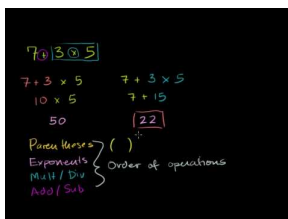 7 + 3 × 5
7 + 3 × 5
10 × 5
50
7 + 3 × 5
7 + 15
22
Parentheses ( )
Exponents
Mult / Div
Add / Sub
Order of operations